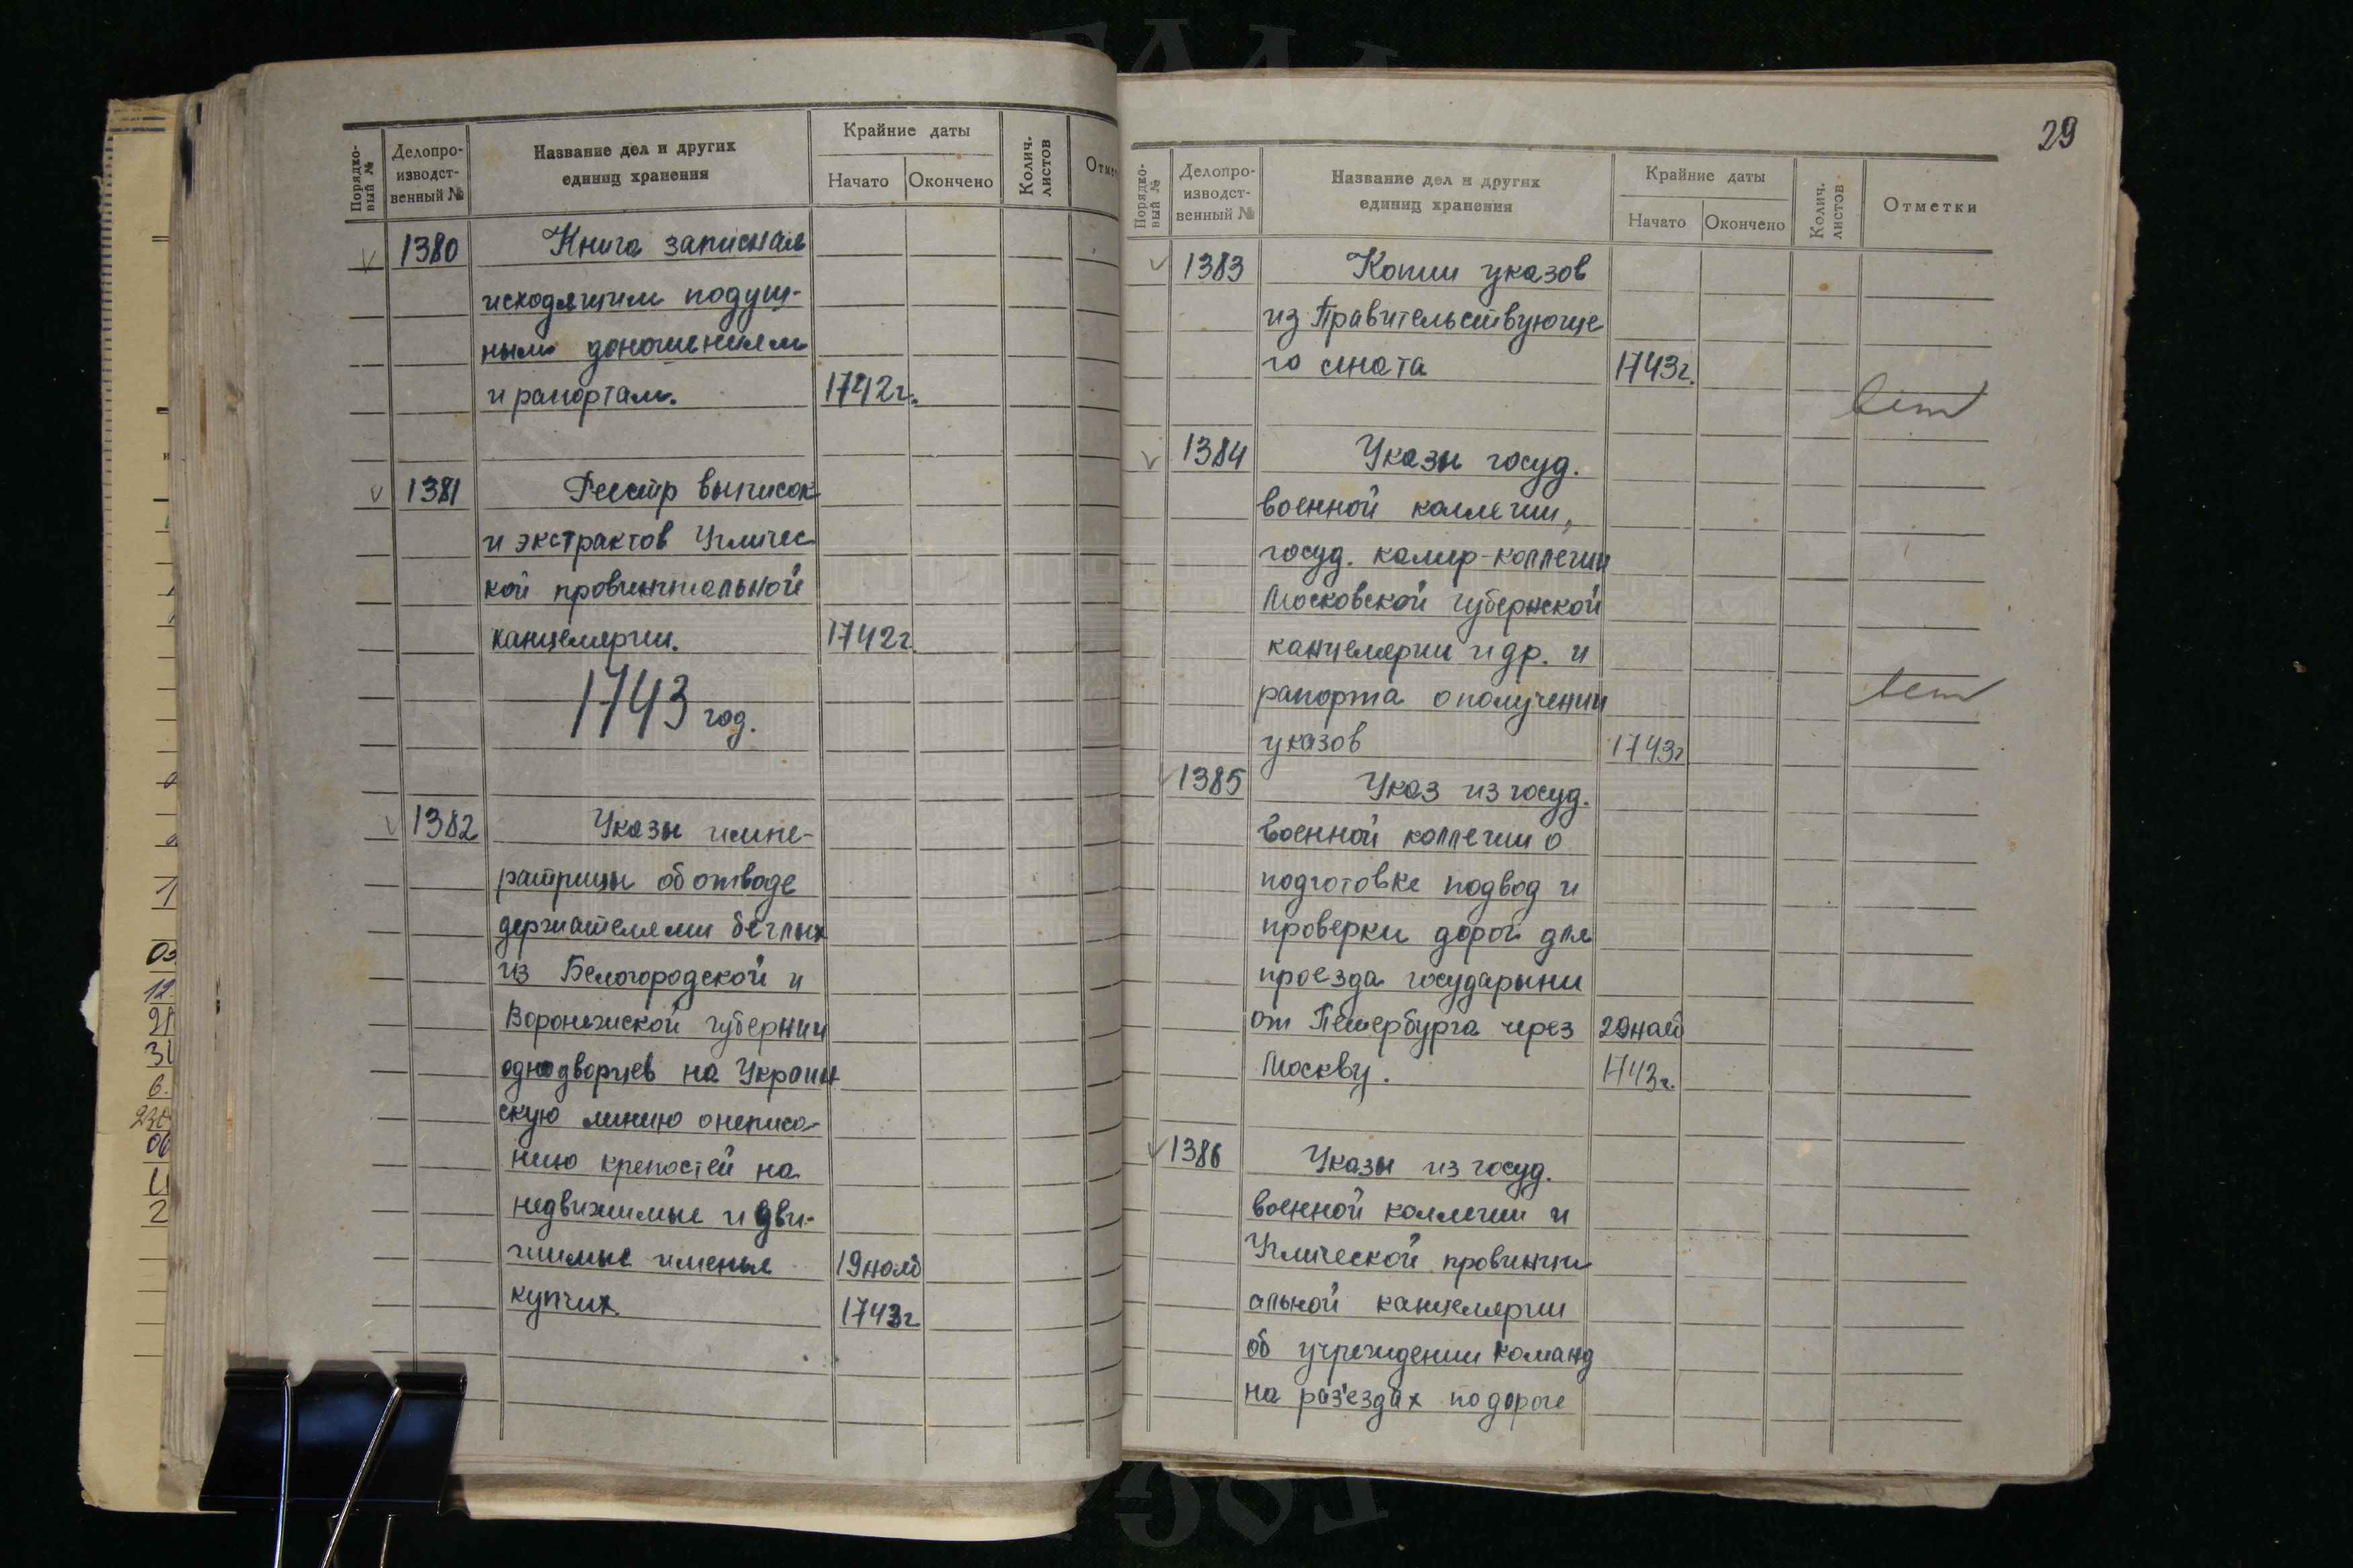 Порядко-
вый №
Делопро-
изводст-
венный №
Название дел и других
единиц хранения
Крайние даты
Начато
Окончено
Колич.
листов
1380
Книга записная
исходящим подуш-
ным доношениям
и рапортам.
1742г.
1381
Реестр выписок
и экстрактов Угличес
кой провинциальной
канцелярии.
1742г.
1743 год.
1382
Указы импе-
ратрицы об отводе
держателями беглых
из Белогородской и
Воронежской губернии
однодворцев на Украин
скую линию о неписа-
нию крепостей на
недвижимые и дви-
жимые именья
19 нояб
купчих.
1743г
29
Порядко-
вый №
Делопро-
изводст-
венный №
Название дел и других
единиц хранения
Крайние даты
Начато
Окончено
Колич.
листов
Отметки
1383
Копии указов
из Правительствующе
го сената
1743г.
1384
Указы госуд.
военной коллегии,
госуд. камер-коллегии
Московской губернской
канцелярии и др. и
рапорта о получении
указов
1743г
1385
Указ из госуд.
военной коллегии о
подготовке подвод и
проверки дорог для
проезда государыни
от Петербурга через
29 нояб
Москву.
1743г.
1386
Указы из госуд.
военной коллегии и
Углической провинци
альной канцелярии
об учреждении команд
на раз'ездах по дороге